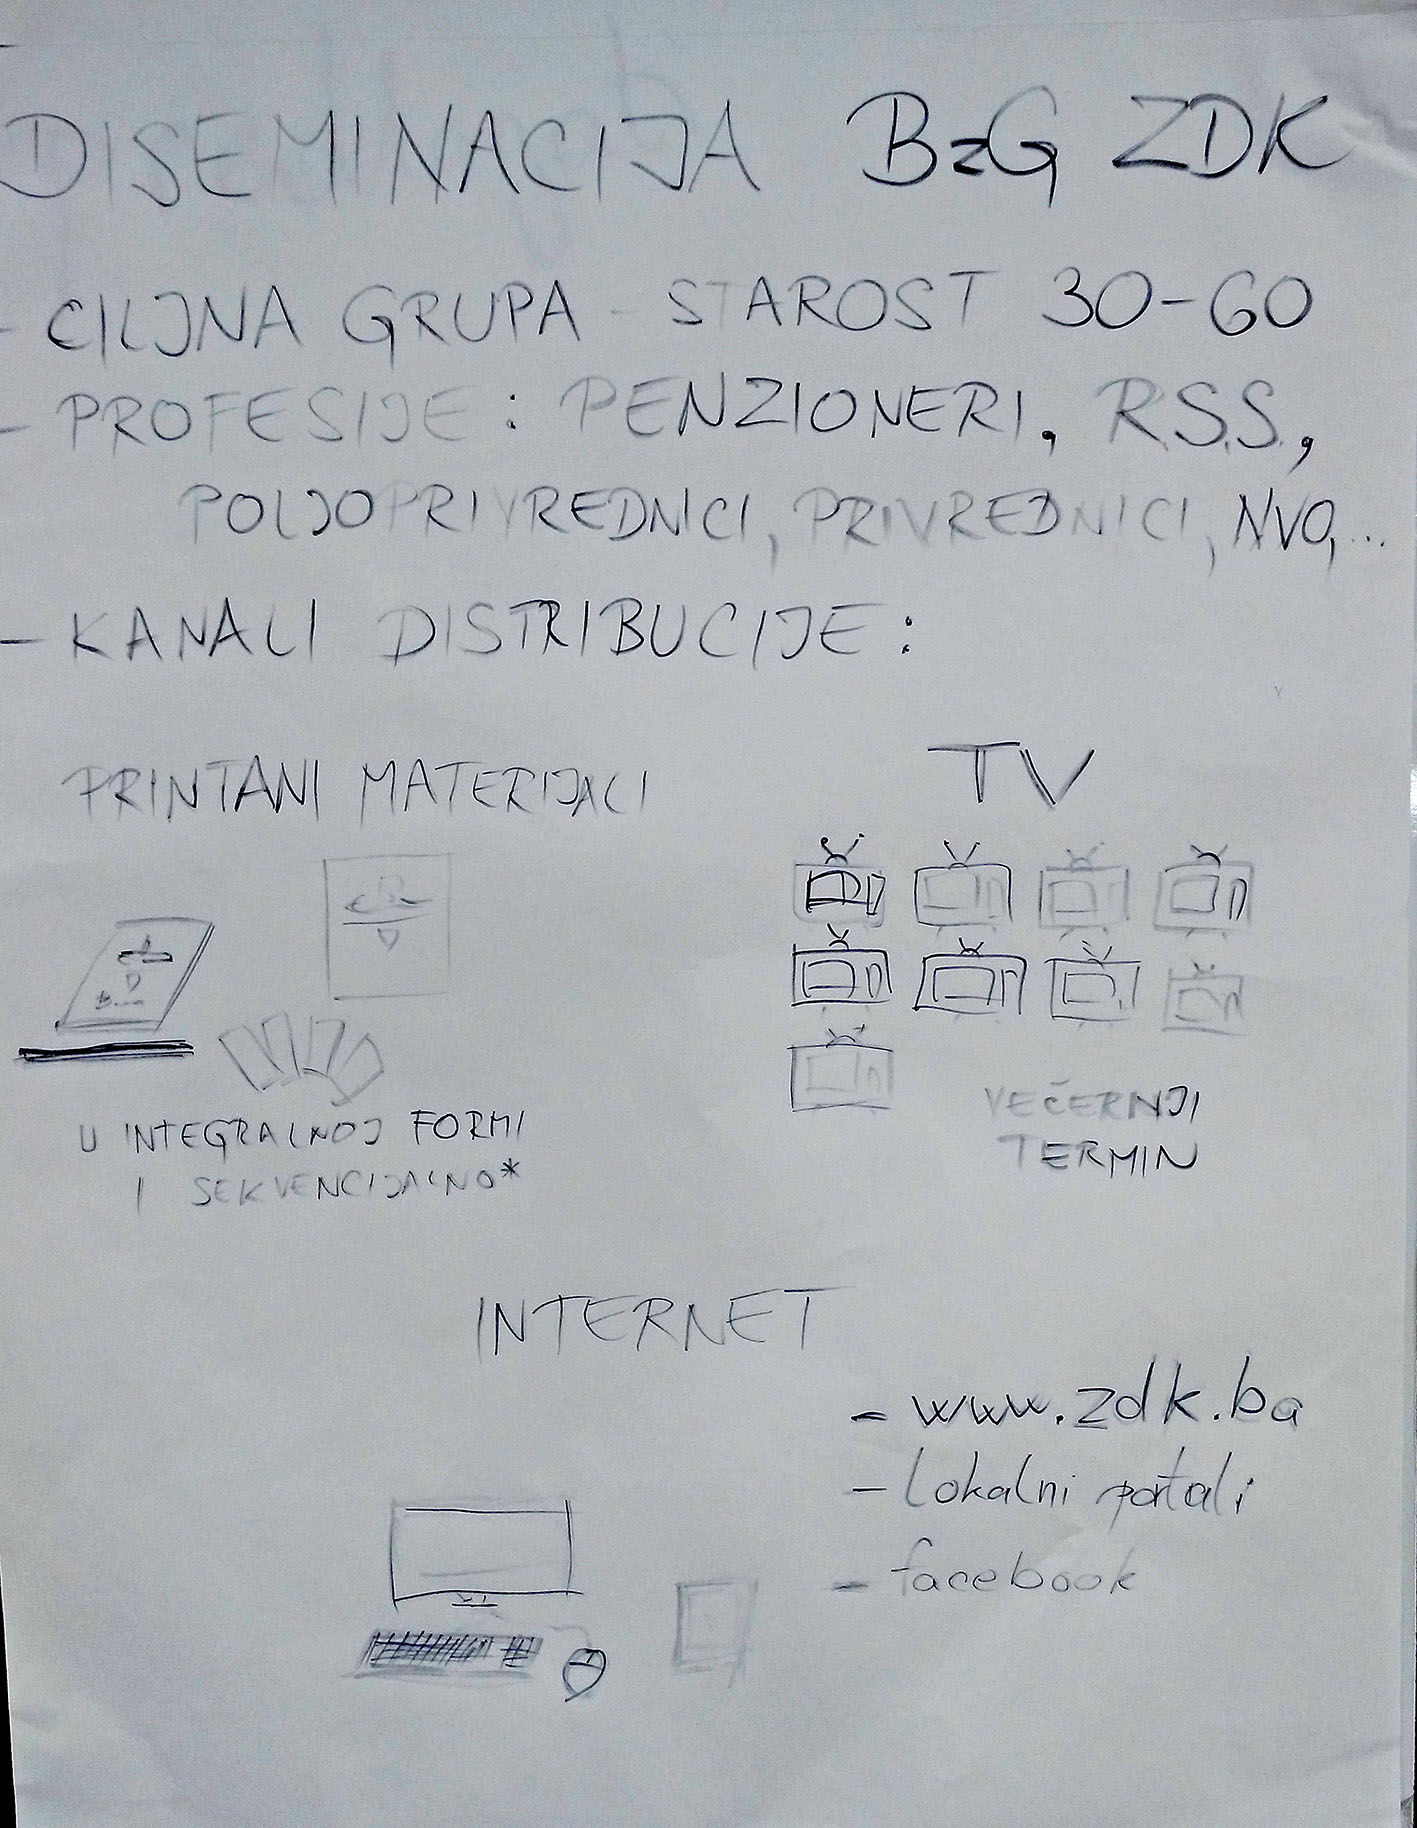 DISEMINACIJA BzG ZDK
- CILJNA GRUPA - STAROST 30-60
- PROFESIJE: PENZIONERI, R.S.S.,
POLJOPRIVREDNICI, PRIVREDNICI, NVO,...
- KANALI DISTRIBUCIJE:
PRINTANI MATERIJALI
U INTEGRALNOJ FORMI
I SEKVENCIJALNO*
TV
VEČERNJI
TERMIN
INTERNET
- www.zdk.ba
- lokalni portali
- facebook